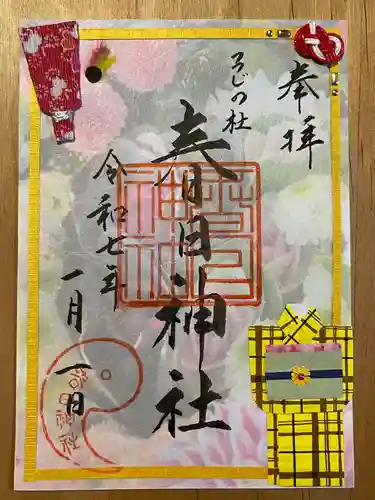 奉拝
ろじの社
春日神社
令和七年
一月一日
春日神社